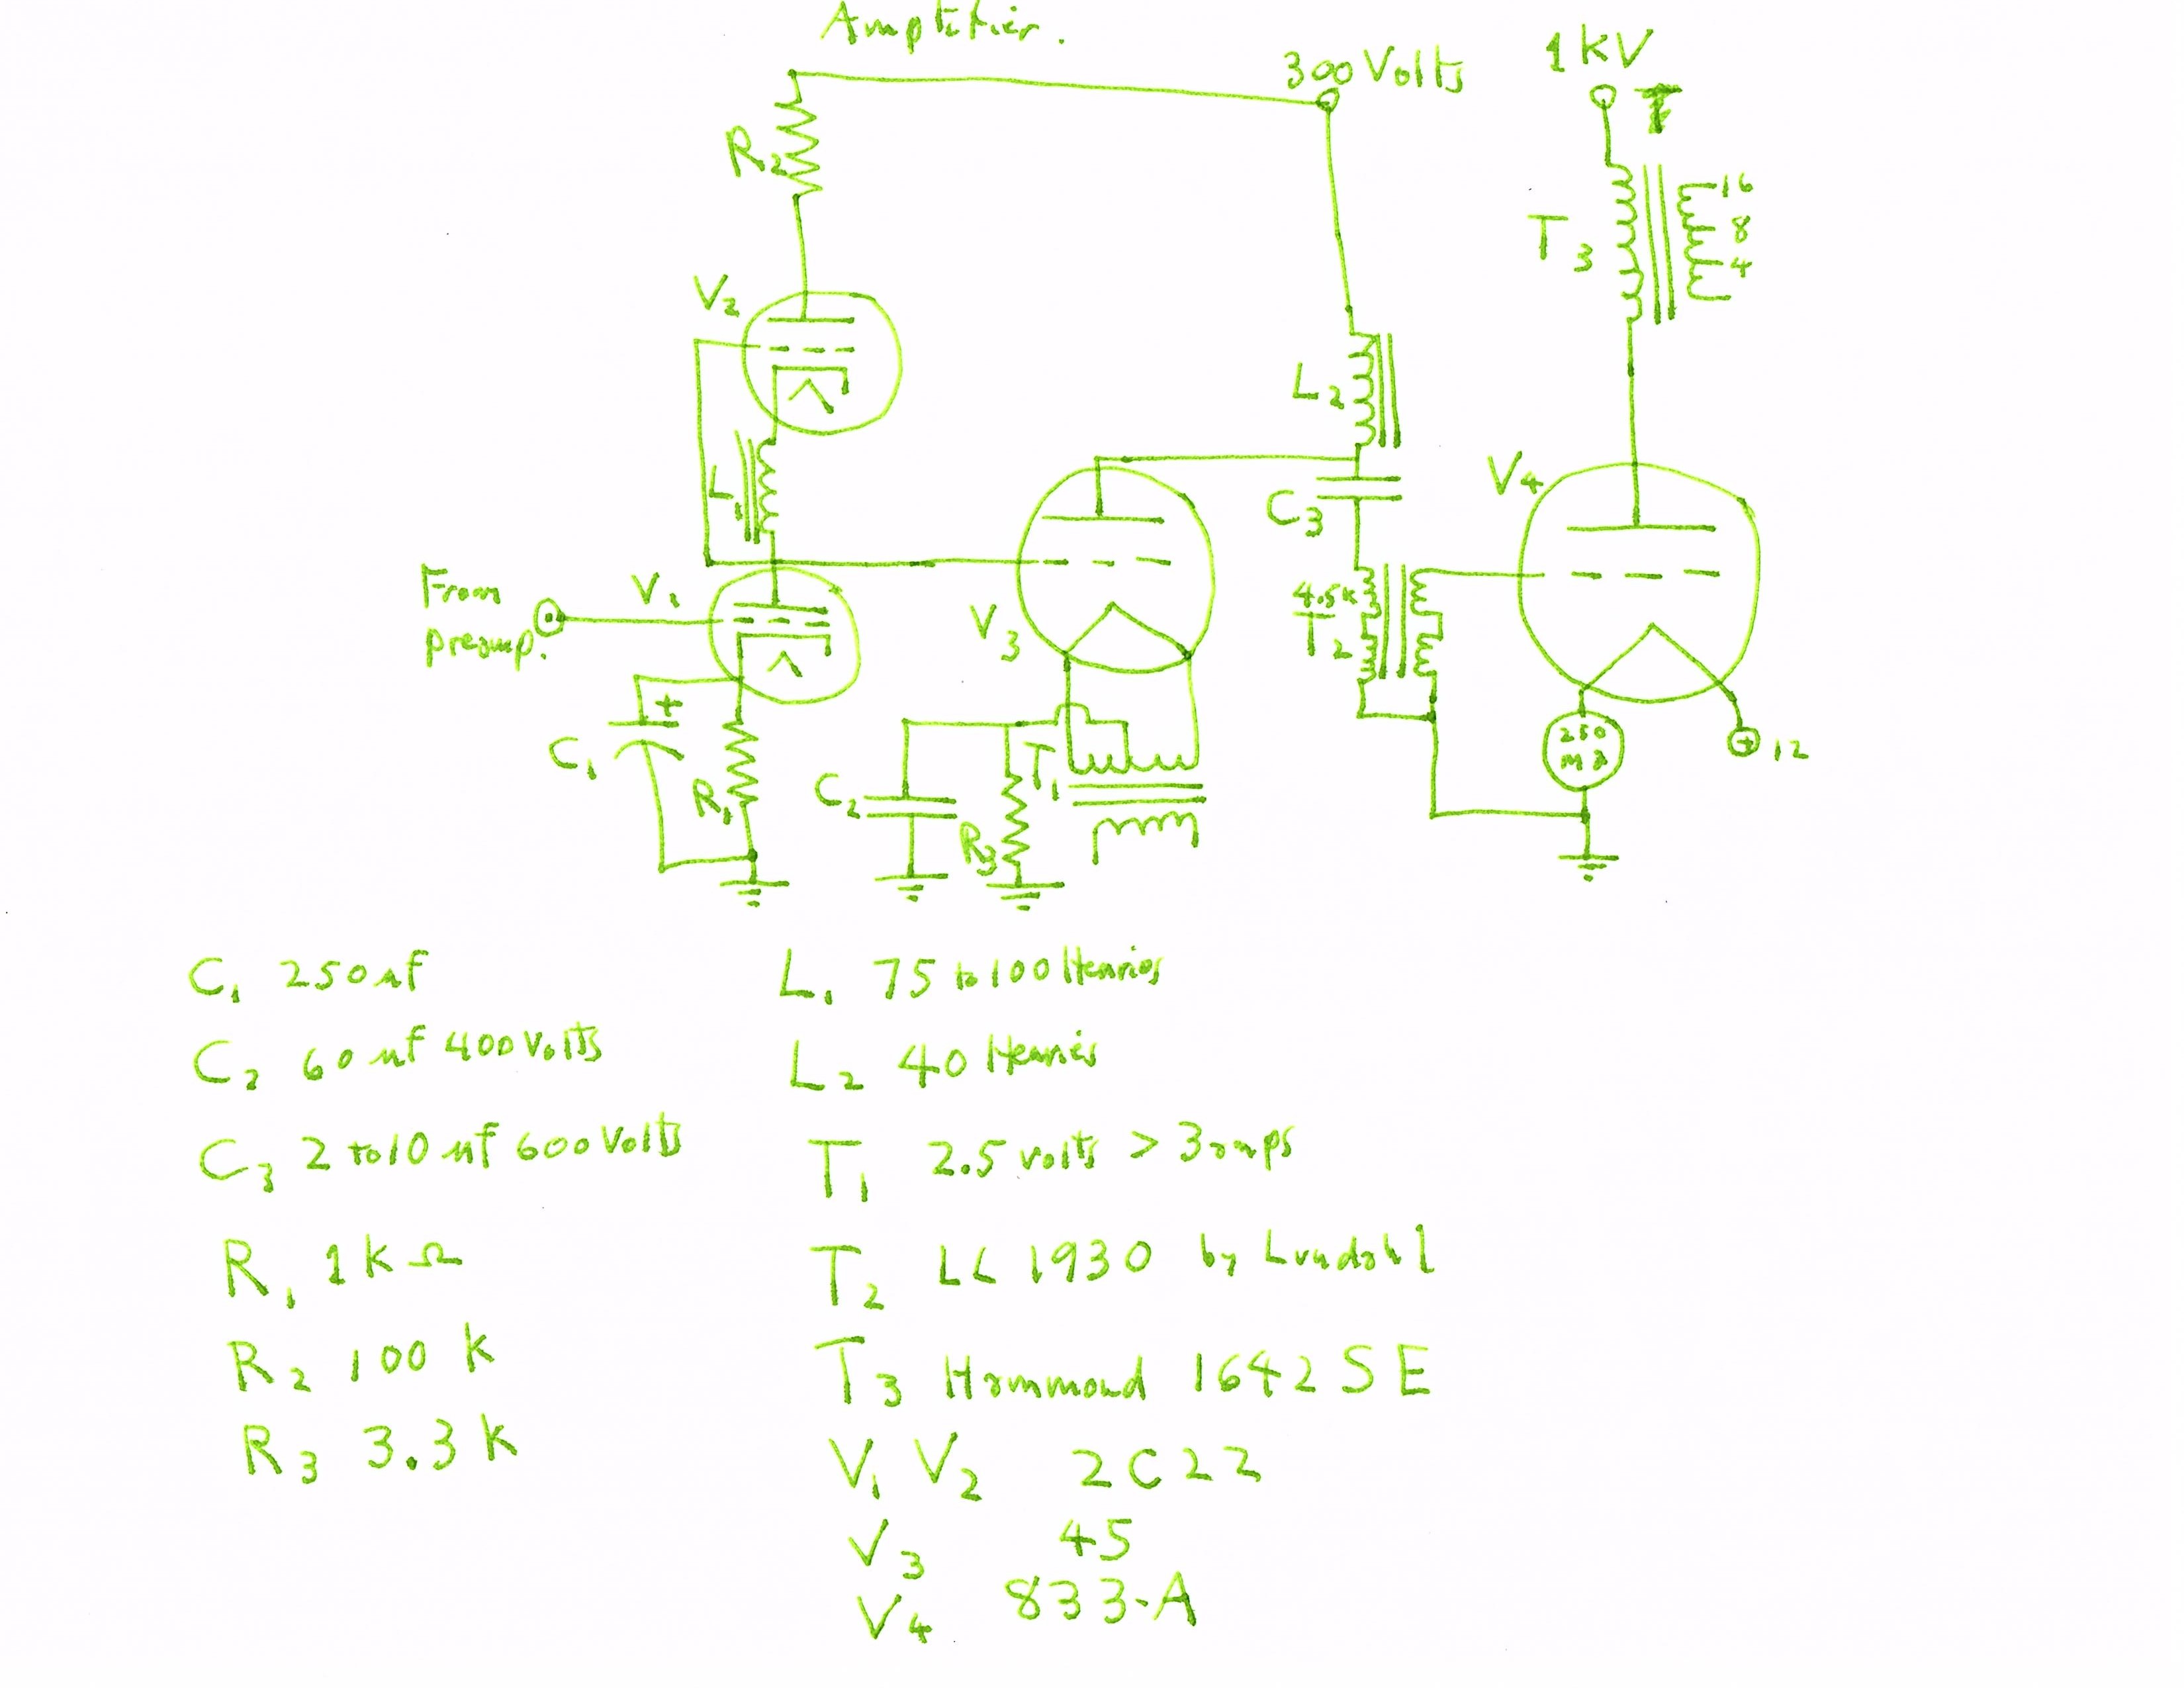 Amplifier.
300 Volts
1kV
R2
16
8
4
T3
V2
L2
L1
V4
C3
From
preamp.
V1
V3
4.5k
T2
+
C1
R1
C2
R3
T1
250
MA
+
12
C1 250 uf
C2 60 uf 400 Volts
C3 2 to 10 uf 600 Volts
R1 1k Ω
R2 100 k
R3 3.3 k
L1 75 to 100 Henries
L2 40 Henries
T1 2.5 volts > 3 amps
T2 LL 1930 by Lundahl
T3 Hammond 1642 SE
V1 V2 2C22
V3 45
V4 833-A